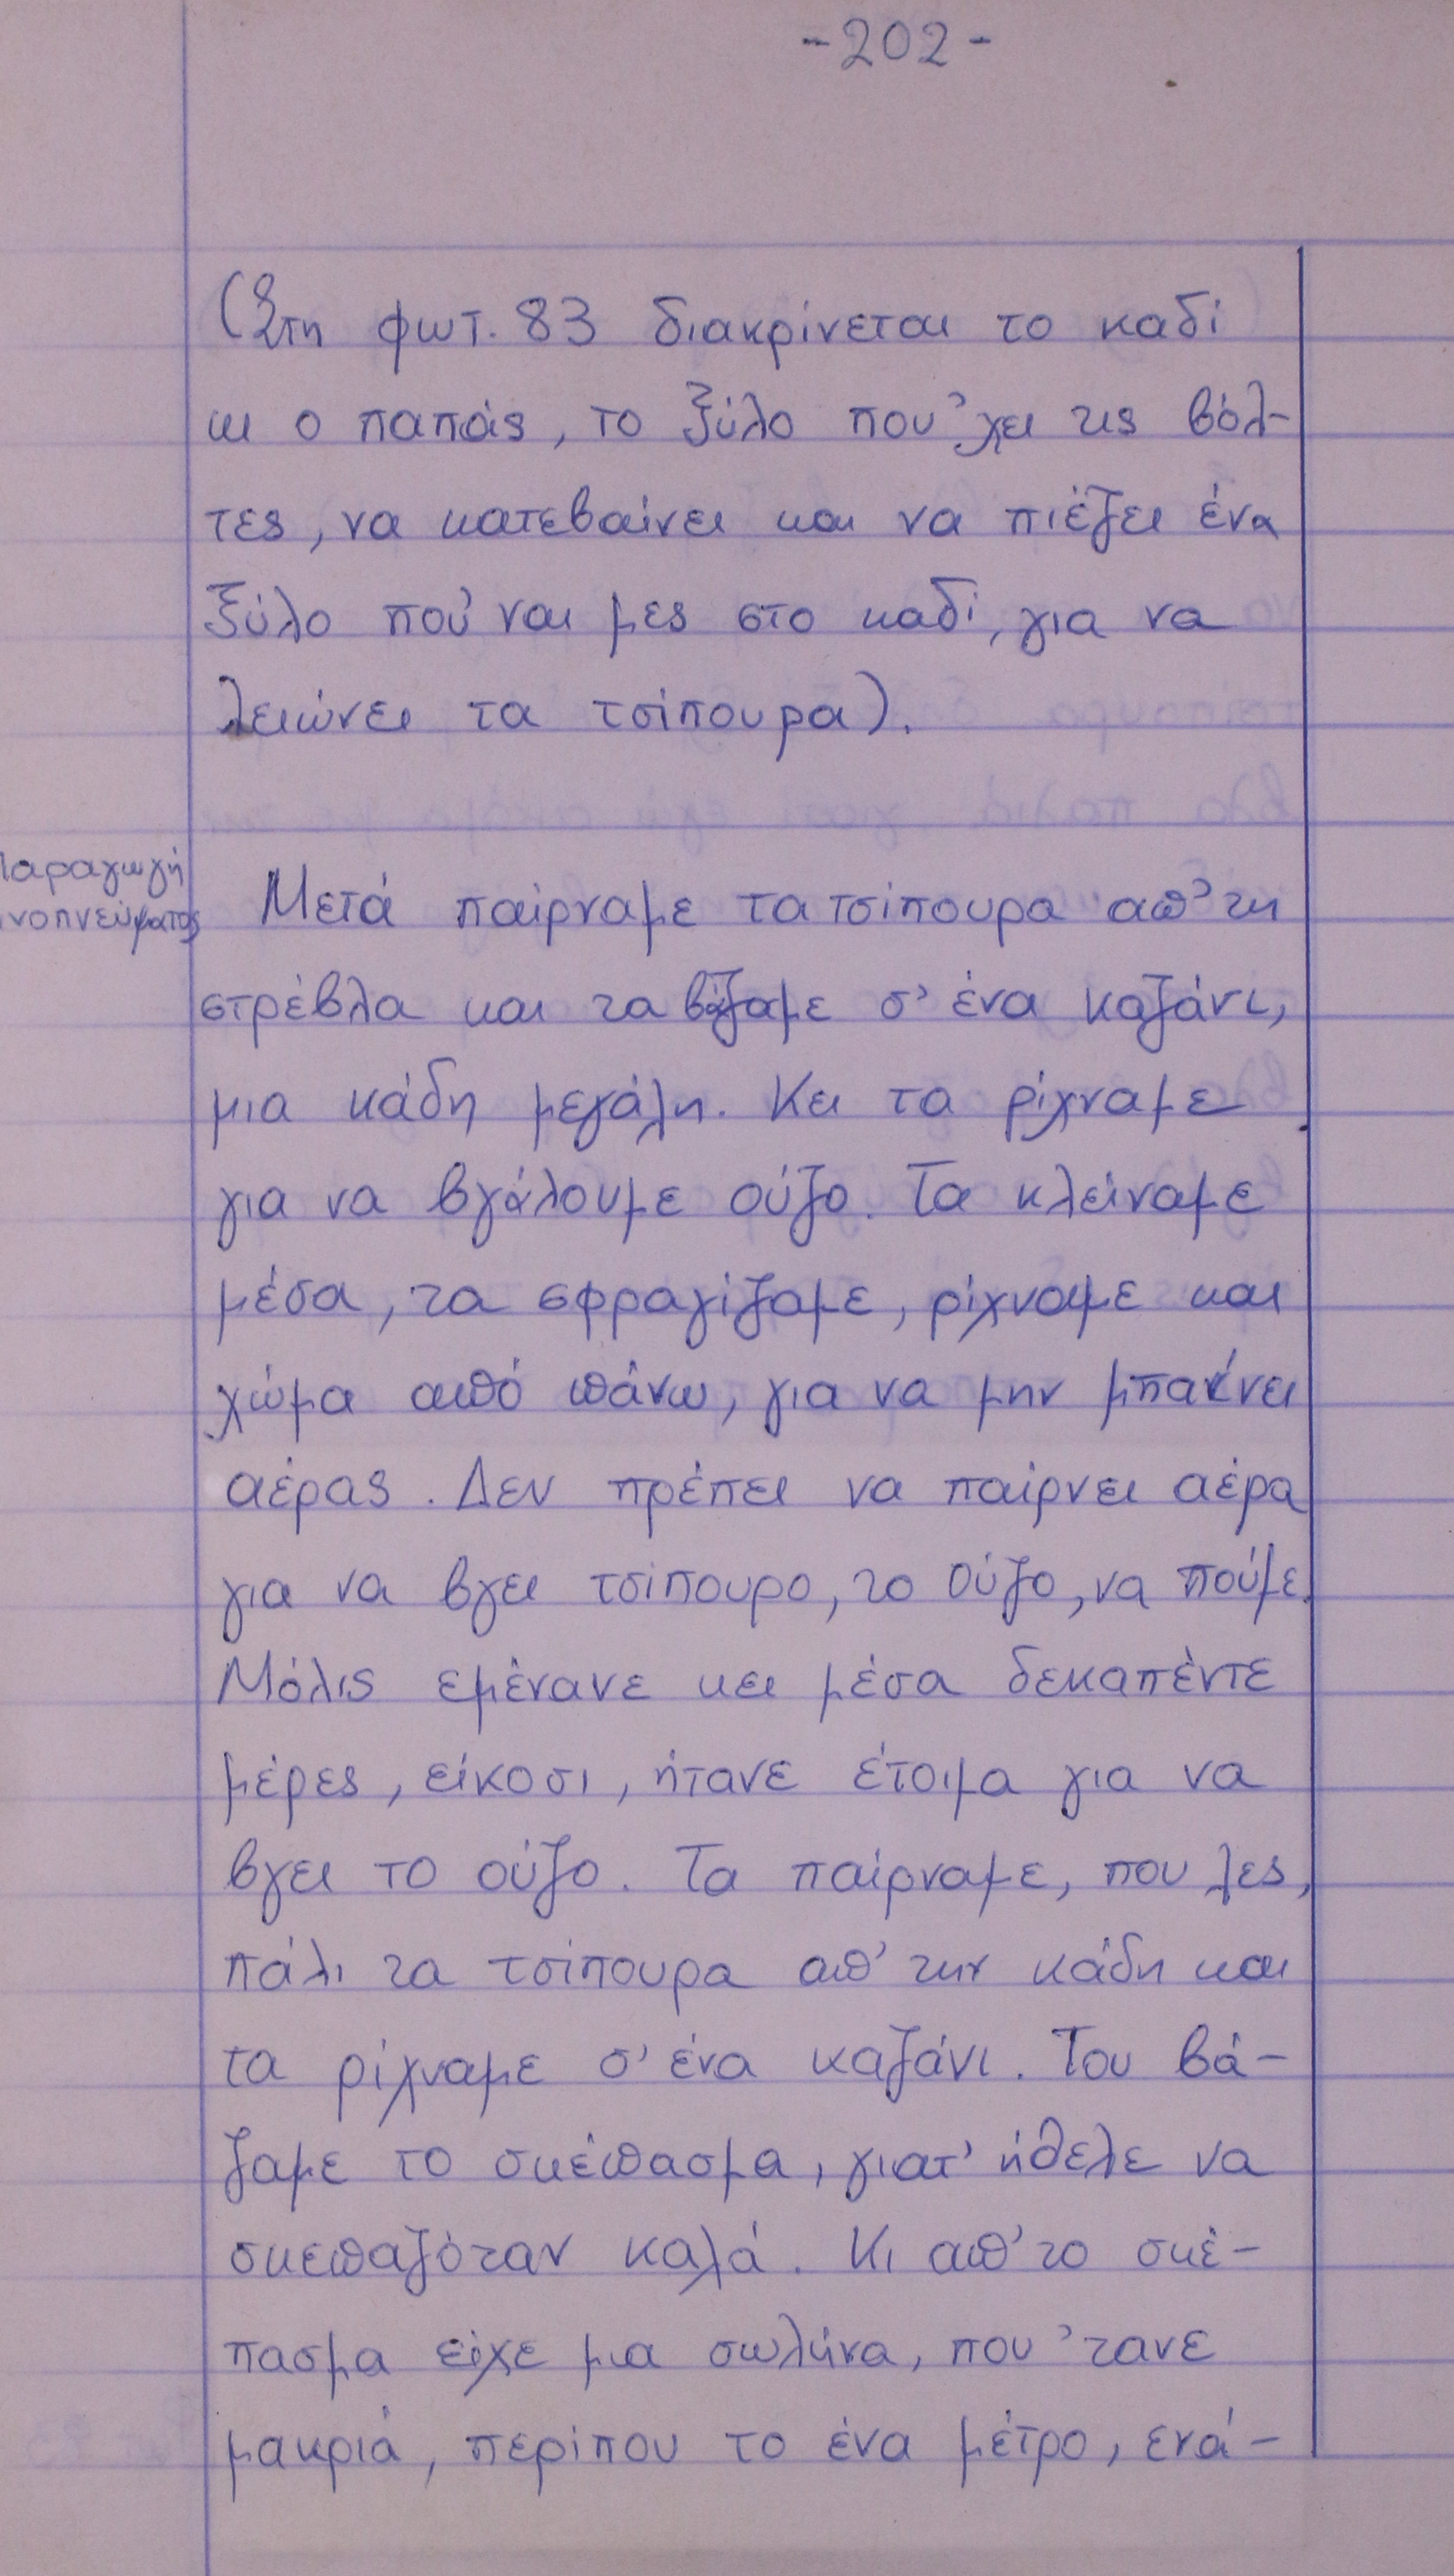 -202-
(Στη φωτ. 83 διακρίνεται το καδί
κι ο παπάς, το ξύλο που 'χει τις βόλ-
τες, να κατεβαίνει και να πιέζει ένα
ξύλο πού ναι μες στο καδί, για να
λειώνει τα τσίπουρα).
Παραγωγή
οινοπνεύματος
Μετά παίρναμε τα τσίπουρα απ' τη
στρέβλα και τα βάζαμε σ' ένα καζάνι,
μια κάδη μεγάλη. Κει τα ρίχναμε
για να βγάλουμε ούζο. Τα κλείναμε
μέσα, τα σφραγίζαμε, ρίχναμε και
χώμα από πάνω, για να μην μπαίνει
αέρας. Δεν πρέπει να παίρνει αέρα
για να βγει τσίπουρο, το ούζο, να πούμε.
Μόλις εμένανε κει μέσα δεκαπέντε
μέρες, είκοσι, ήτανε έτοιμα για να
βγει το ούζο. Τα παίρναμε, που λες,
πάλι τα τσίπουρα απ' την κάδη και
τα ρίχναμε σ' ένα καζάνι. Του βά-
ζαμε το σκέπασμα, γιατ' ήθελε να
σκεπαζόταν καλά. Κι απ' το σκέ-
πασμα είχε μια σωλήνα, που 'τανε
μακριά, περίπου το ένα μέτρο, ενά-